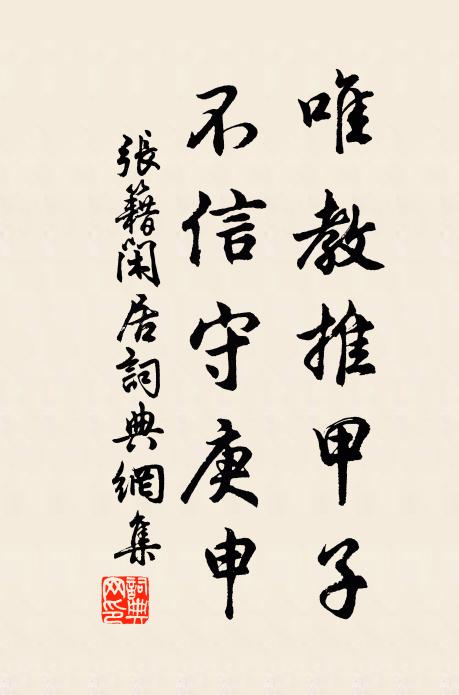 唯教推甲子
不信守庚申
張籍閑居詞典網集
詞典網印